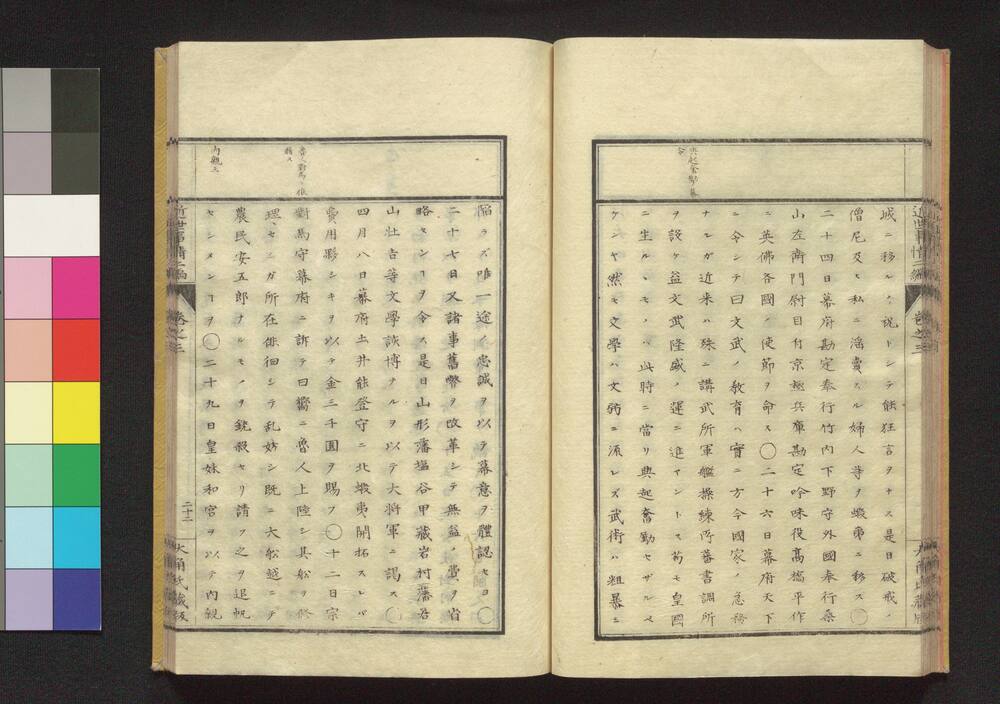 興起奮勤ノ幕令
城ニ移ルノ説トシテ能狂言ヲナス是日破戒ノ
僧尼及ヒ私ニ淫賣スル婦人等ヲ蝦夷ニ移ス〇
二十四日幕府勘定奉行竹内下野守外國奉行桑
山左衛門尉目付京極兵庫勘定吟味役髙橋平作
ニ英佛各國ノ使節ヲ命ス〇二十六日幕府天下
ニ令シテ曰文武ノ教育ハ實ニ方今國家ノ急務
ナレバ近来ハ殊ニ講武所軍艦操練所蕃書調所
ヲ設ケ益文武隆盛ノ運ニ進マントス苟モ皇國
ニ生ルヽモノハ此時ニ當リ興起奮勤セザルベ
ケンヤ然モ文學ハ文弱ニ流レズ武術ハ粗暴ニ
近世事情二編 卷之三 大角氏藏版
陥ラズ唯一途ノ忠誠ヲ以テ幕意ヲ體認セヨ〇
二十七日又諸事舊弊ヲ改革シテ無益ノ費ヲ省
略センコヲ令ス是日山形藩塩谷甲藏岩村藩若
山壮吉等文學該博ナルヲ以テ大将軍ニ謁ス〇
四月八日幕府土井能登守ニ北蝦夷開拓スレバ
費用夥シキヲ以テ金三千圓ヲ賜フ〇十二日宗
對馬守幕府ニ訴テ曰嚮ニ魯人上陸シ其船ヲ修
理セシガ所在徘徊シテ乱妨シ既ニ大舩越ニテ
農民安五郎ナルモノヲ銃殺セリ請フ之ヲ退帆
セシメンコヲ〇二十九日皇妹和宮ヲ以テ内親
近世事情二編 卷之三 二十二 大角氏藏版